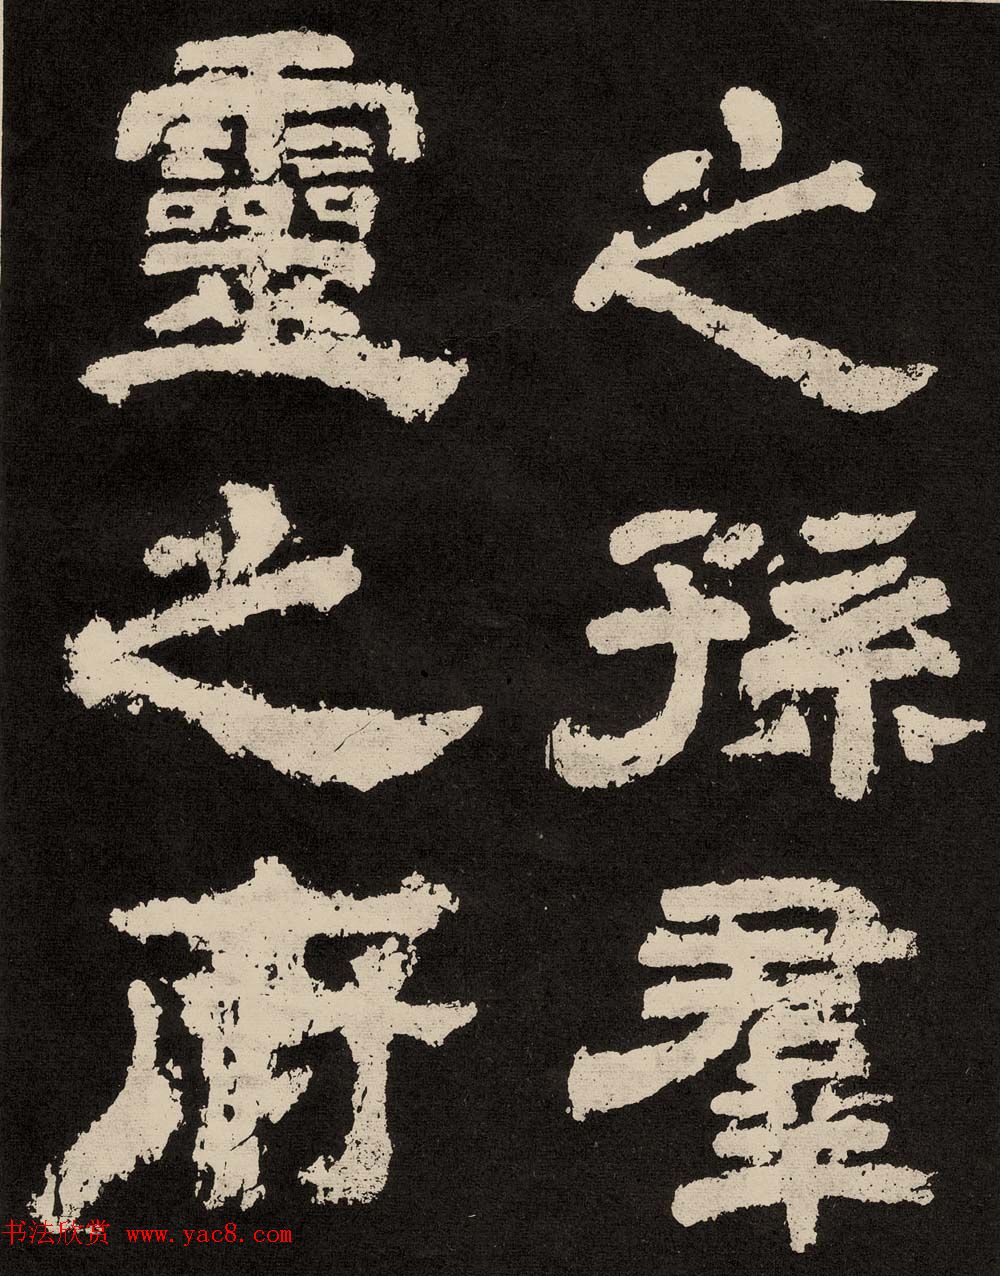 之孫羣
靈之府
书法欣赏 www.yac8.com